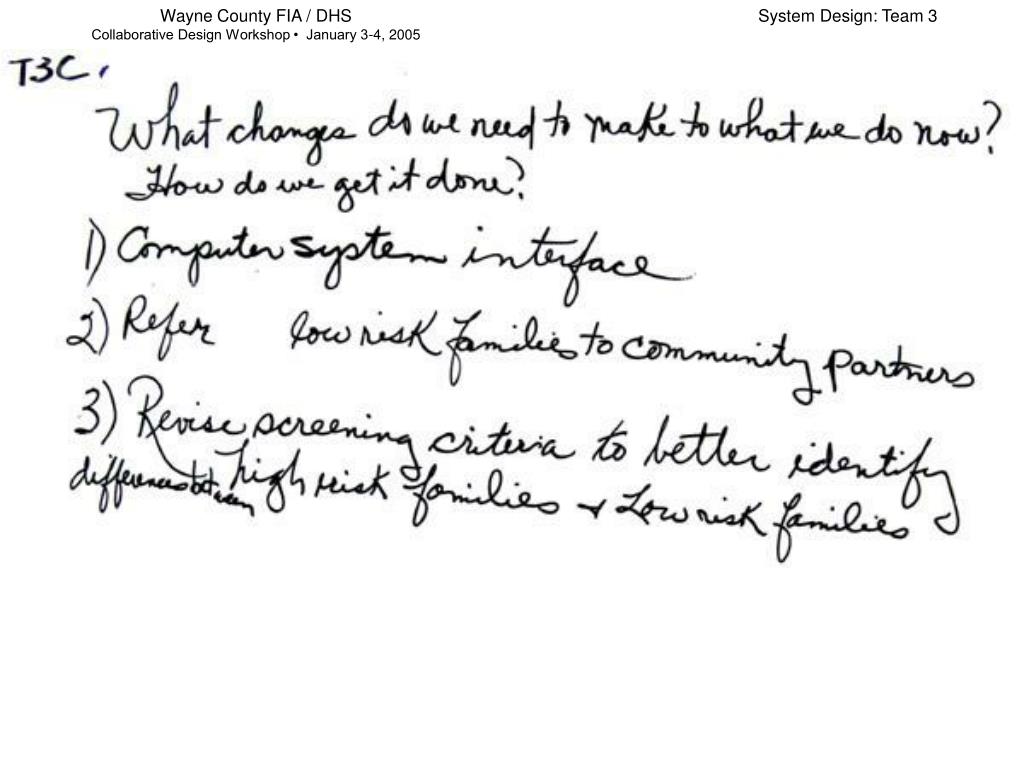 Wayne County FIA / DHS
System Design: Team 3
Collaborative Design Workshop • January 3-4, 2005
T3C.
What changes do we need to make to what we do now?
How do we get it done?
1) Computer system interface
2) Refer low risk families to community partners
3) Revise screening criteria to better identify
differences between high risk families & Low risk families